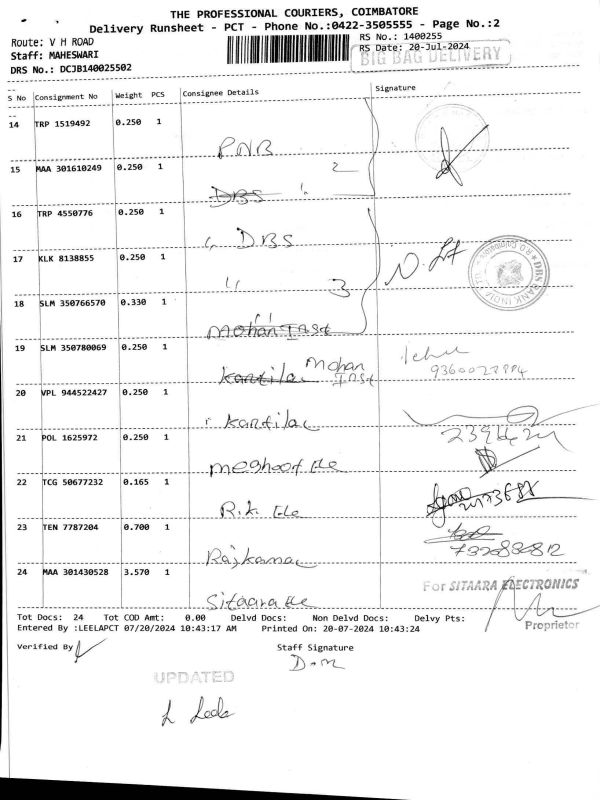 THE PROFESSIONAL COURIERS, COIMBATORE
Delivery Runsheet - PCT - Phone No.:0422-3505555 - Page No.:2
Route: V H ROAD
RS No.: 1400255
Staff: MAHESWARI
RS Date: 20-Jul-2024
DRS No.: DCJB140025502
BIG BAG DELIVERY
S No Consignment No Weight PCS Consignee Details Signature
14 TRP 1519492 0.250 1
PNB
15 MAA 301610249 0.250 1
2
DBS
16 TRP 4550776 0.250 1
DBS
17 KLK 8138855 0.250 1
3
DBS BANK INDIA
18 SLM 350766570 0.330 1
Mohan Inst
19 SLM 350780069 0.250 1
Kantilal Mohan Inst
20 VPL 944522427 0.250 1
Kantilal
21 POL 1625972 0.250 1
Meghoot Ele
22 TCG 50677232 0.165 1
R.K. Ele
23 TEN 7787204 0.700 1
Rajkamal
24 MAA 301430528 3.570 1
For SITAARA ELECTRONICS
Sitaara Ele
Proprietor
Tot Docs: 24 Tot COD Amt: 0.00 Delvd Docs: Non Delvd Docs: Delvy Pts:
Entered By :LEELAPCT 07/20/2024 10:43:17 AM Printed On: 20-07-2024 10:43:24
Verified By
Staff Signature
UPDATED